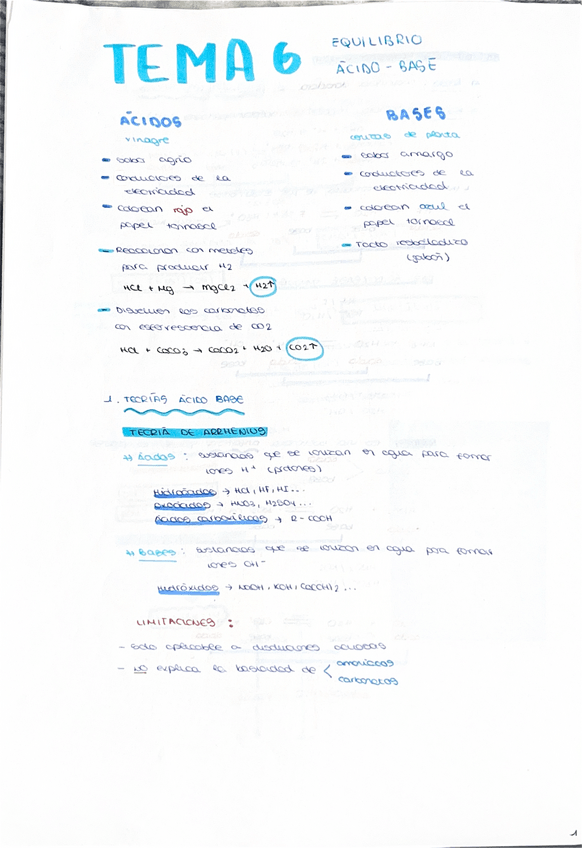 TEMA 6
EQUILIBRIO
ÁCIDO - BASE
ÁCIDOS
vinagre
- sabor agrio
- conductores de la
electricidad
- colorean rojo el
papel tornasol
- Reaccionan con metales
para producir H2
HCl + Mg → MgCl2 + H2↑
- Disuelven los carbonatos
con efervescencia de CO2
HCl + CaCO3 → CaCO2 + H2O + CO2↑
BASES
cenizas de planta
- sabor amargo
- conductores de la
electricidad
- colorean azul el
papel tornasol
- Tacto resbaladizo
(jabón)
1. TEORÍAS ÁCIDO BASE
TEORÍA DE ARRHENIUS
# Ácidos : sustancias que se ionizan en agua para formar
iones H+ (protones)
Hidrácidos → HCl, HF, HI...
Oxoácidos → HNO3, H2SO4...
Ácidos carboxílicos → R-COOH
# BASES : sustancias que se ionizan en agua para formar
iones OH-
Hidróxidos → NaOH, KOH, Ca(OH)2 ...
LIMITACIONES :
- solo aplicable a disoluciones acuosas
- NO explica la basicidad de < amoniacos
carbonatos
1